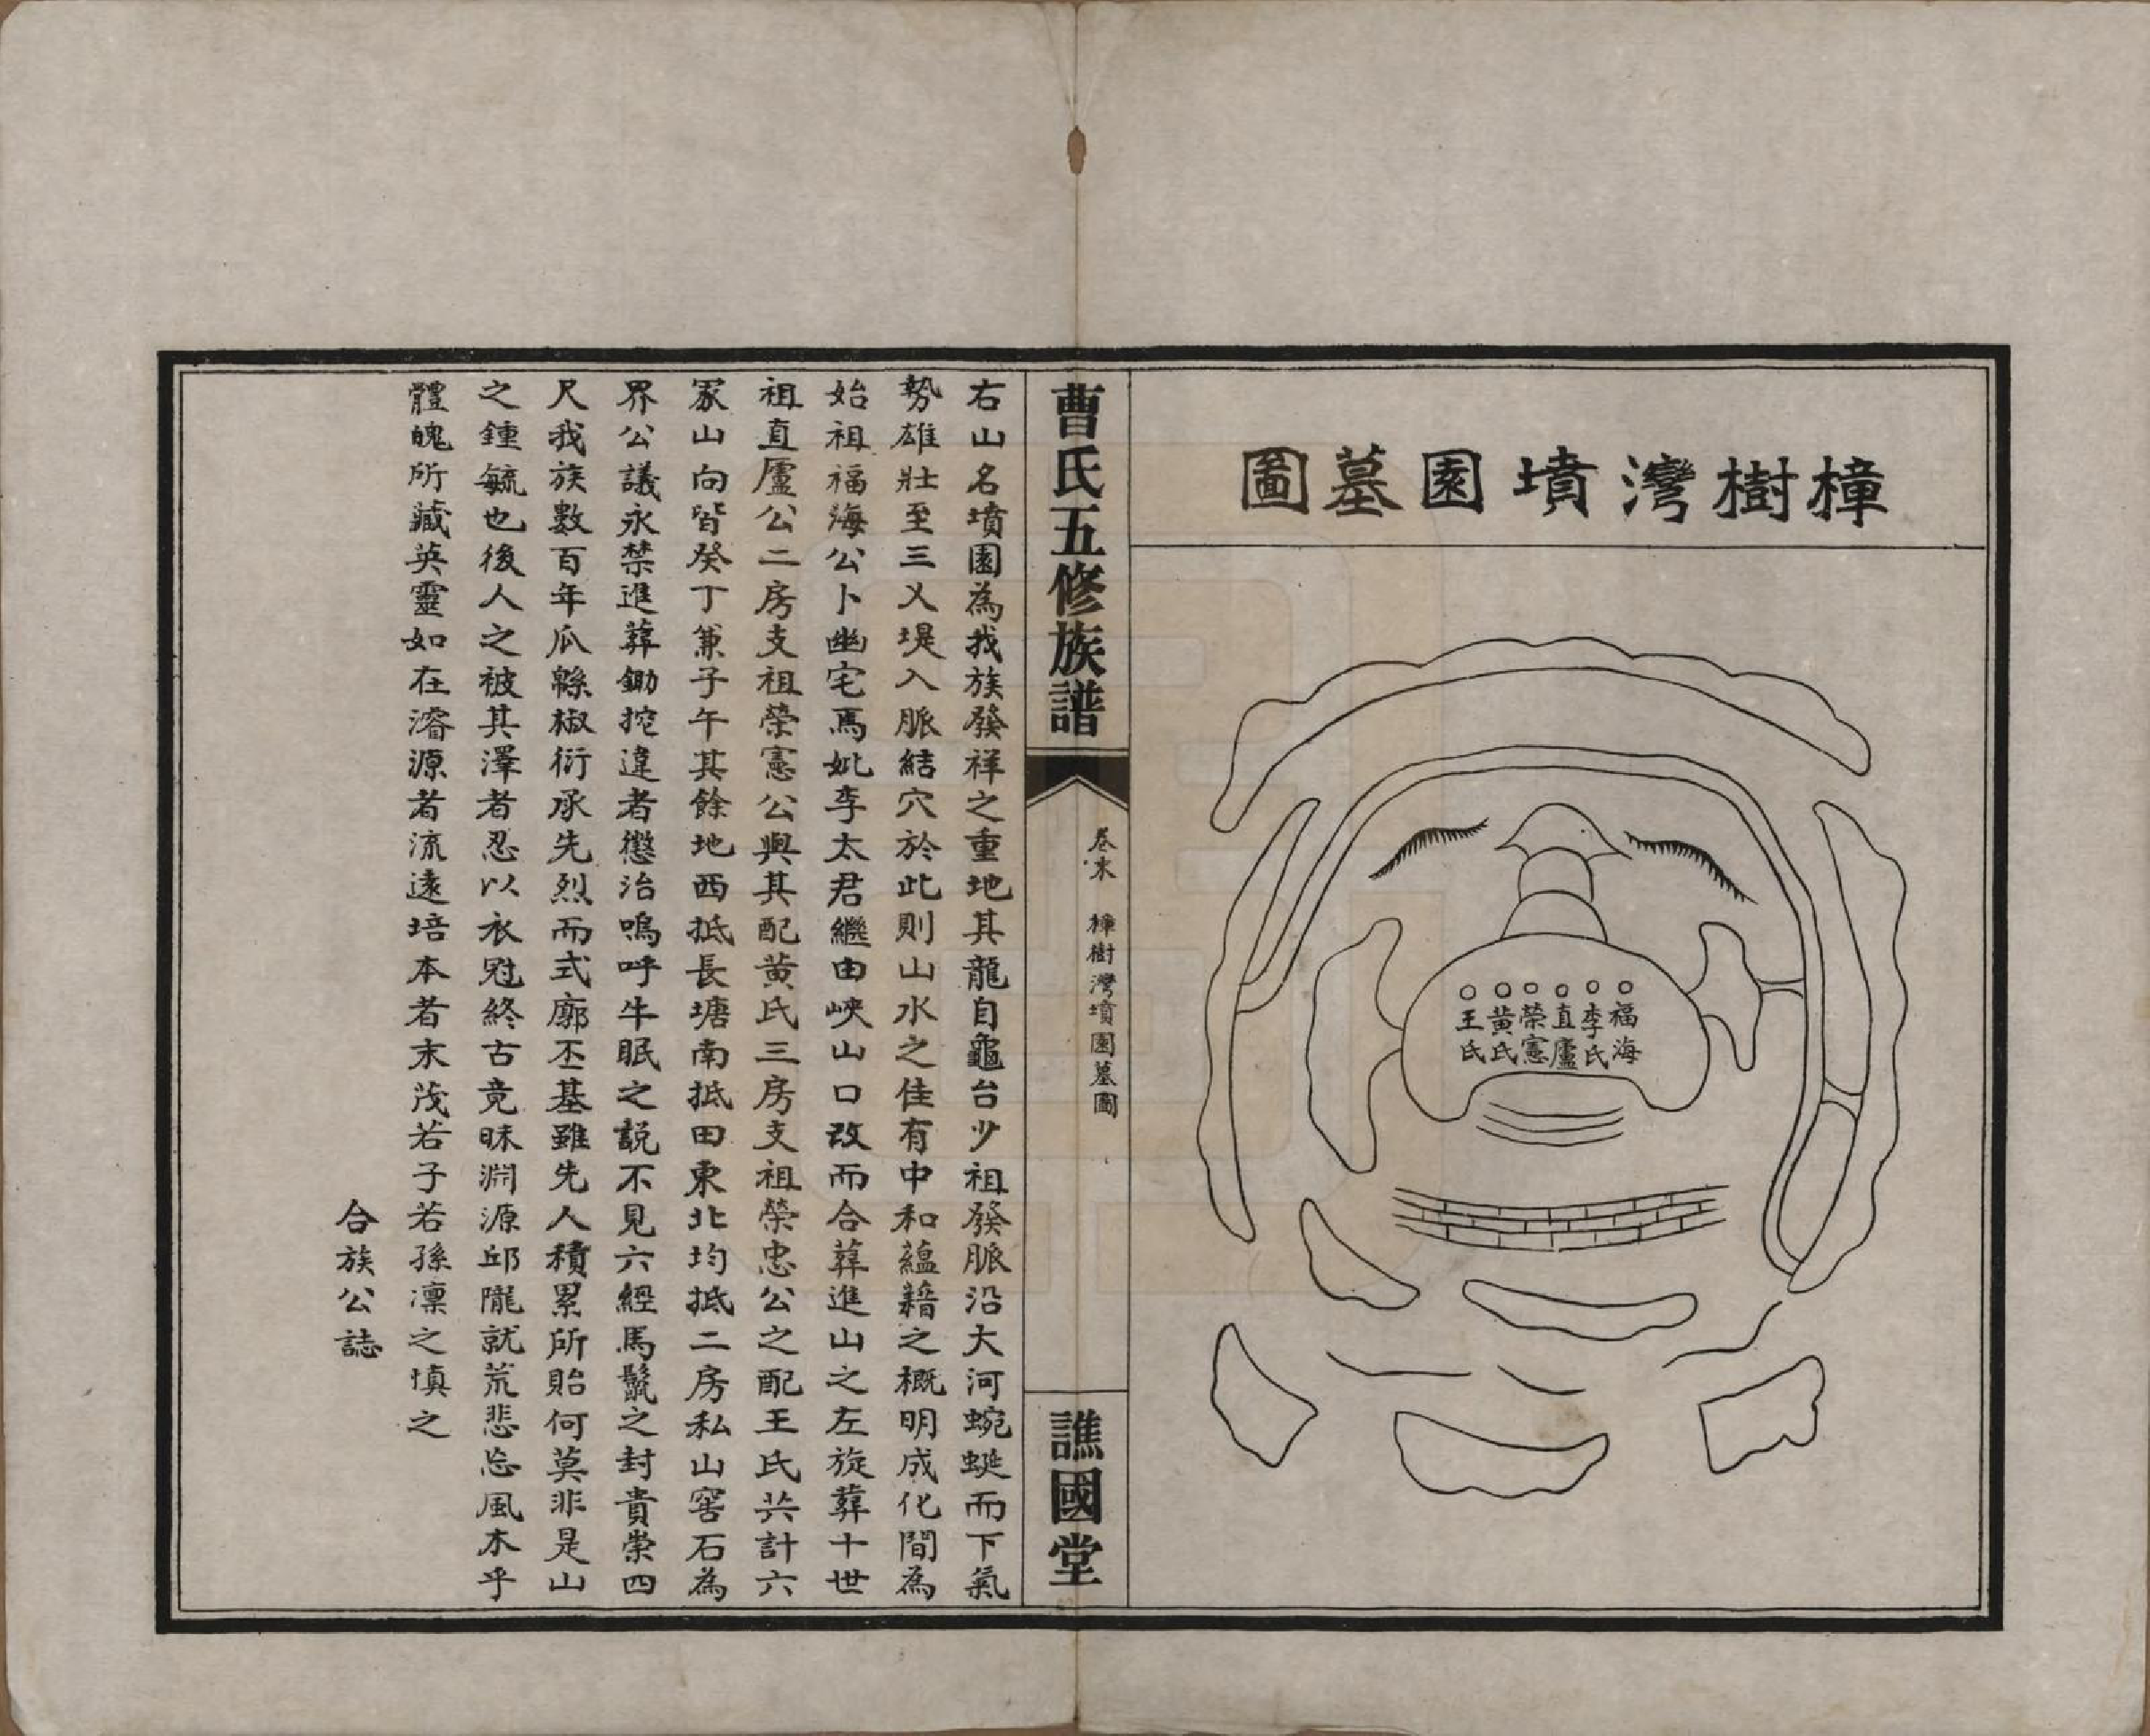 樟樹灣墳園墓圖
福海
李氏
直廬
榮憲
黃氏
王氏
曹氏五修族譜
卷末 樟樹灣墳園墓圖
譙國堂
右山名墳園為我族發祥之重地其龍自龜台少祖發脈沿大河蜿蜒而下氣
勢雄壯至三乂堤入脈結穴於此則山水之佳有中和蘊藉之概明成化間為
始祖福海公卜幽宅焉妣李太君繼由峽山口改而合葬進山之左旋葬十世
祖直廬公二房支祖榮憲公與其配黃氏三房支祖榮忠公之配王氏共計六
冢山向皆癸丁兼子午其餘地西抵長塘南抵田東北均抵二房私山窖石為
界公議永禁進葬鋤挖違者懲治嗚呼牛眠之説不見六經馬鬛之封貴崇四
尺我族數百年瓜緜椒衍承先烈而式廓丕基雖先人積累所貽何莫非是山
之鍾毓也後人之被其澤者忍以衣冠終古竟昧淵源邱隴就荒悲忘風木乎
體魄所藏英靈如在濬源者流遠培本者末茂若子若孫凜之慎之
合族公誌